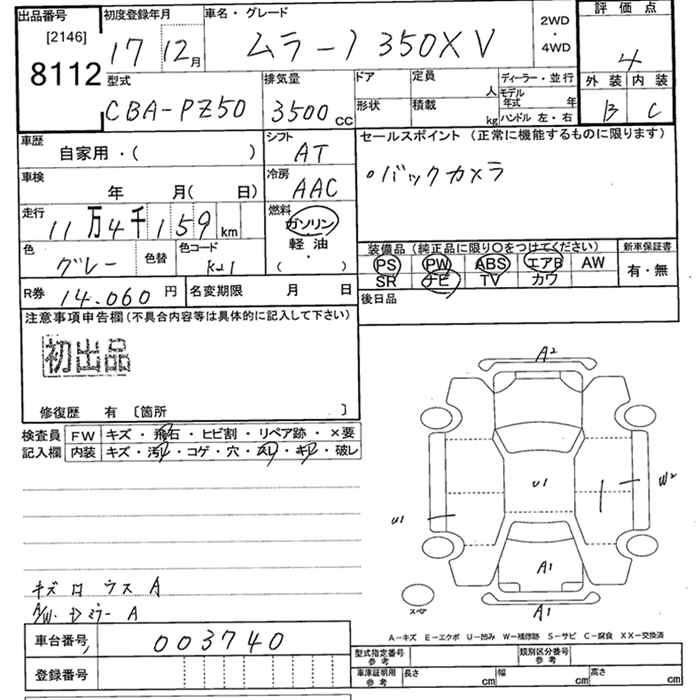 出品番号
[2146]
8112
初度登録年月
17 12月
車名・グレード
ムラーノ 350XV
2WD
・
4WD
評価点
4
外装 内装
B C
型式
CBA-PZ50
排気量
3500 CC
ドア
形状
定員 人
積載 kg
ディーラー・並行
モデル年式 年
ハンドル 左・右
車歴
自家用・( )
シフト
AT
セールスポイント (正常に機能するものに限ります)
○バックカメラ
車検
年 月( 日)
冷房
AAC
走行
11万4千159 km
燃料
ガソリン
軽油
( ・ )
色
グレー
色替
色コード
K21
装備品 (純正品に限り○をつけてください)
PS PW ABS エアB AW
SR ナビ TV カワ
新車保証書
有・無
R券 14.060 円
名変期限 月 日
後日品
注意事項申告欄(不具合内容等は具体的に記入して下さい)
初出品
修復歴 有 〔箇所 〕
検査員
記入欄
FW キズ・飛石・ヒビ割・リペア跡・×要
内装 キズ・汚レ・コゲ・穴・スレ・キレ・破レ
A2
U1
U1
W2
A1
A1
スペア
キズ ロ ウス A
A/W・Dミラー A
A-キズ E-エクボ U-凹み W-補修跡 S-サビ C-腐食 XX-交換済
車台番号 003740
登録番号
型式指定番号
参考
類別区分番号
参考
車庫証明用
参考
長さ cm
幅 cm
高さ cm